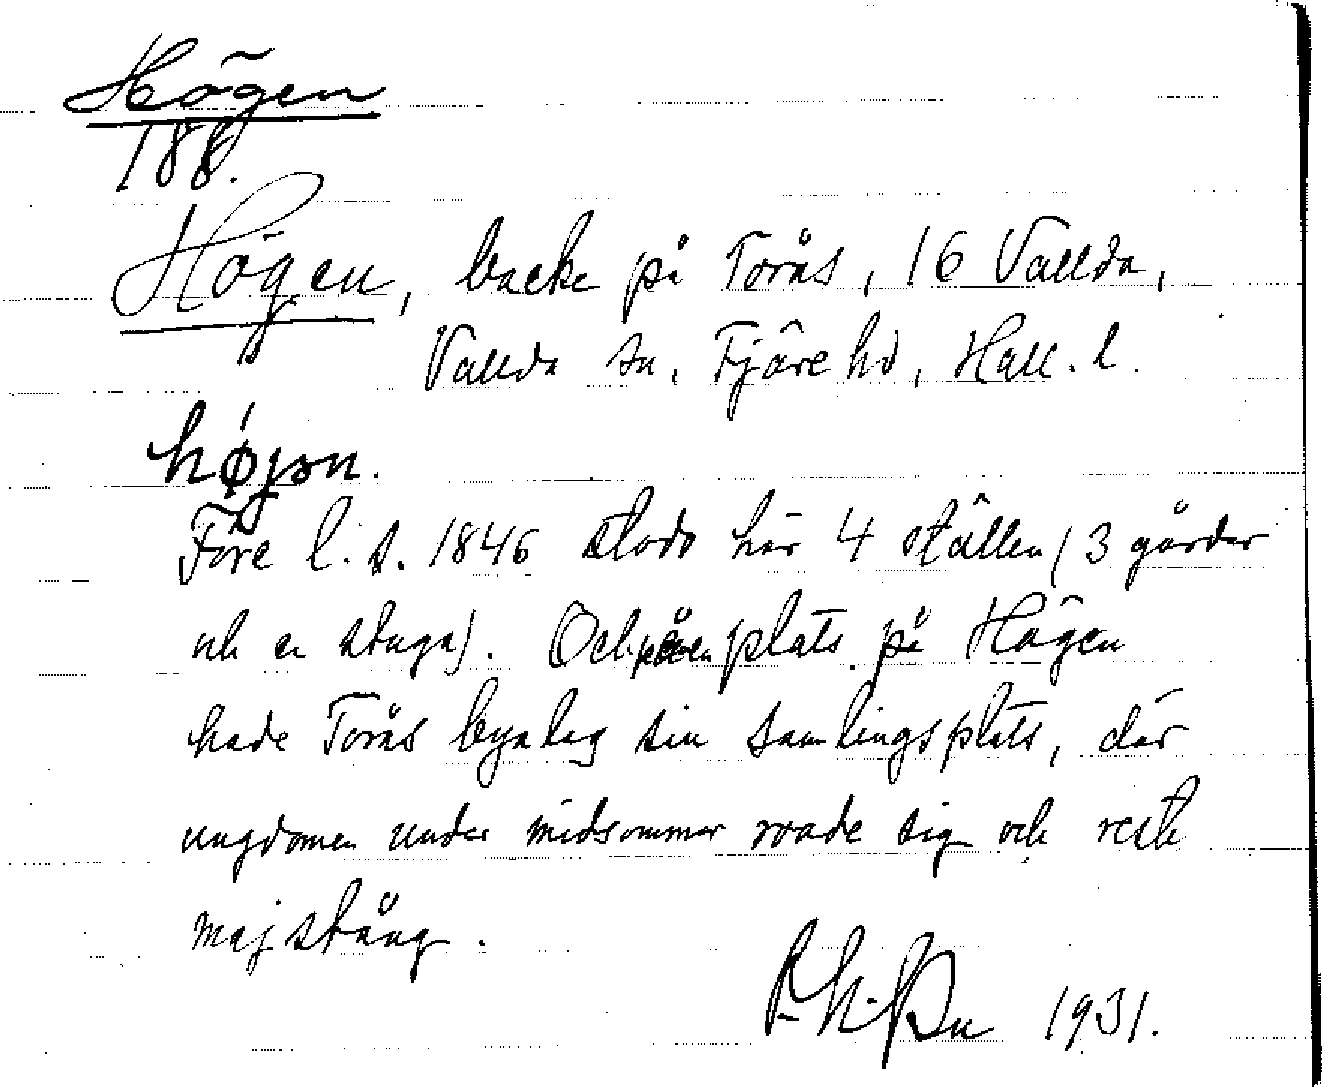 Högen
188.
Högen, backe på Torås, 16 Vallda,
Vallda sn, Fjäre hd, Hall. l.
højən.
Före l. s. 1846 stodo här 4 ställen (3 gårdar
och en stuga). Och plats på Högen
hade Torås byalag sin samlingsplats, där
ungdomen under midsommar roade sig och reste
majstång.
1931.